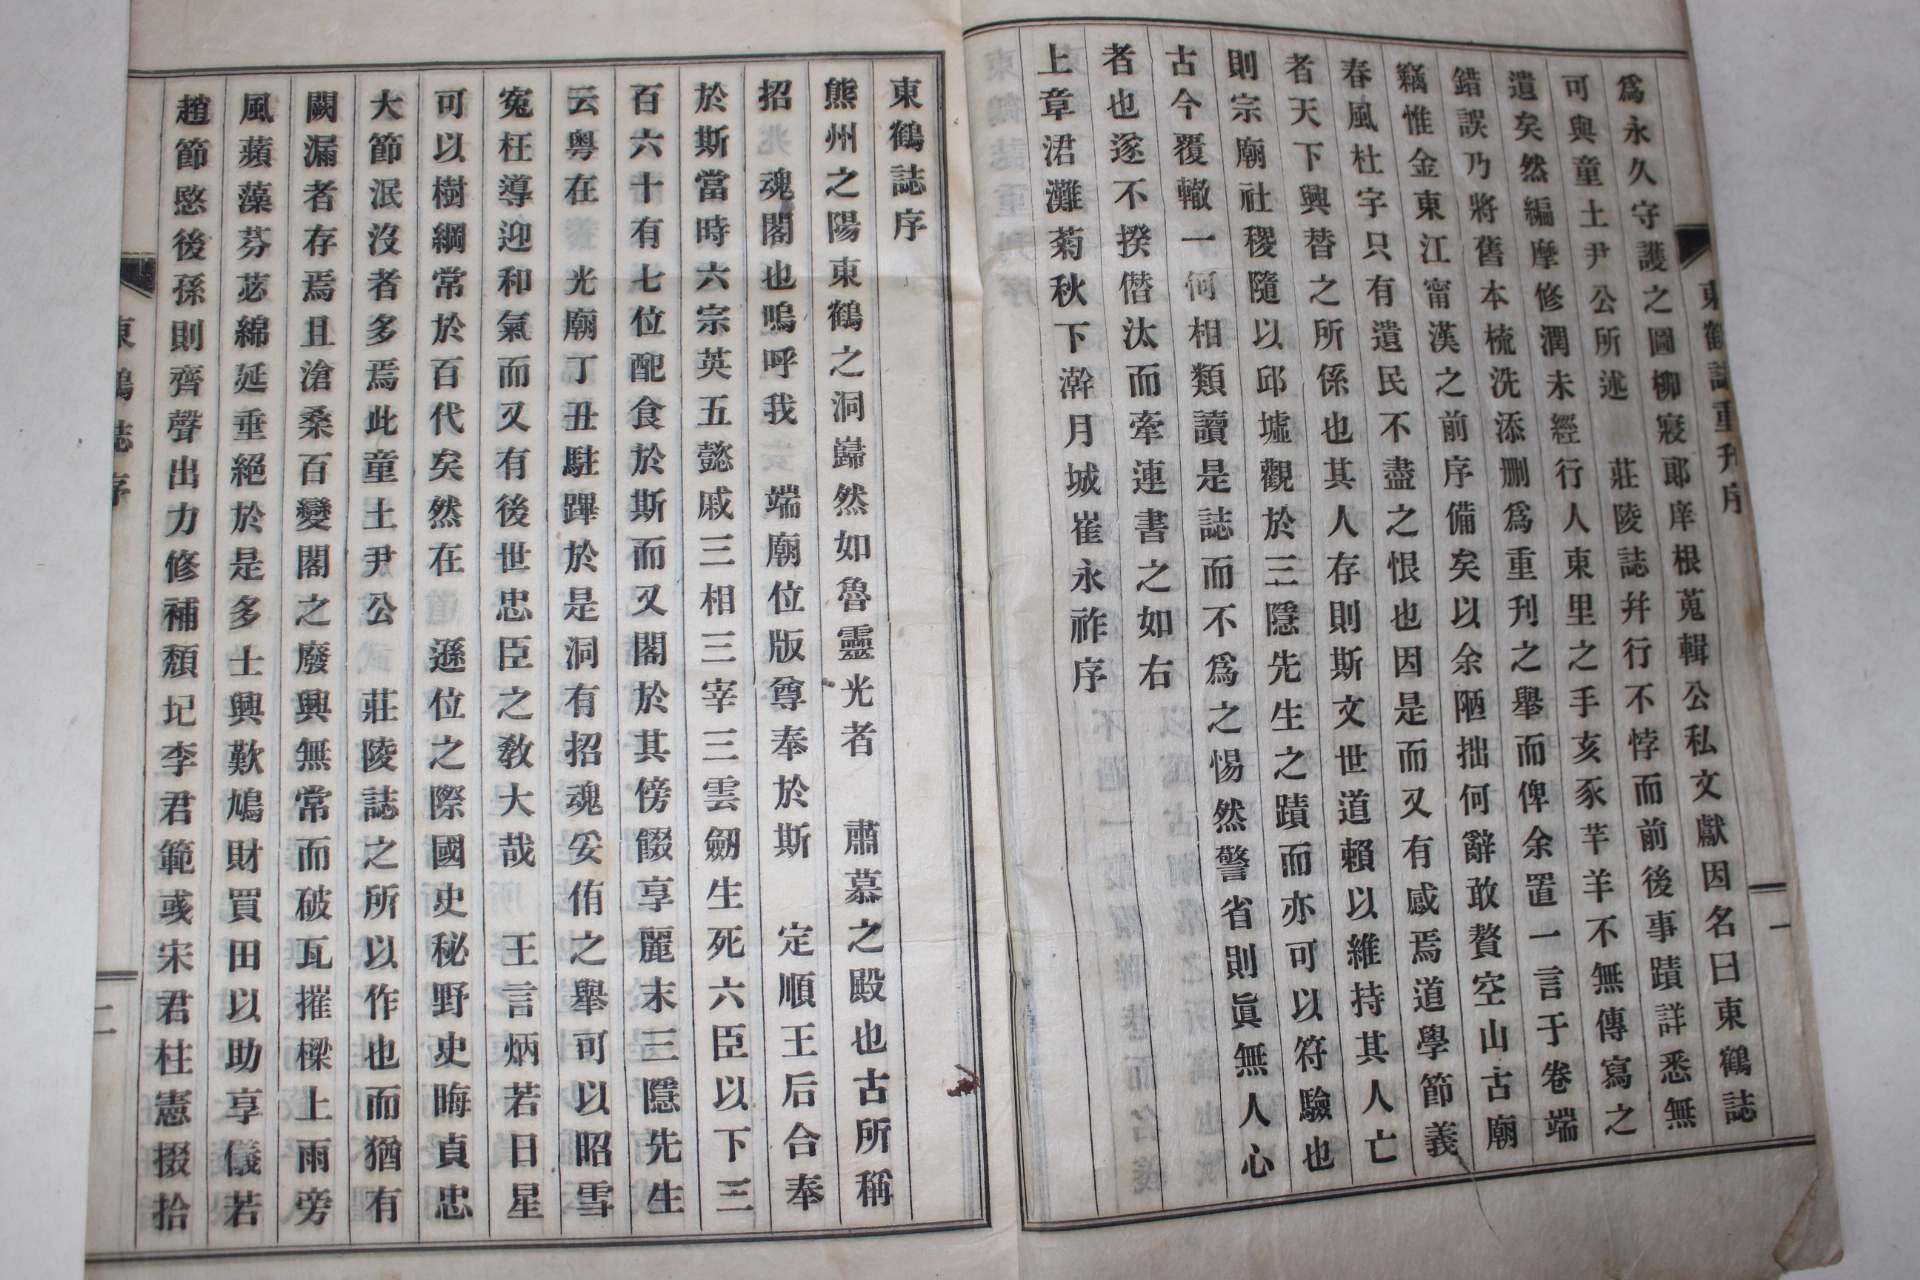 東鶴誌重刊序
一
爲永久守護之圖柳寢郞庠根蒐輯公私文獻因名曰東鶴誌
可與童土尹公所述 莊陵誌幷行不悖而前後事蹟詳悉無
遺矣然編摩修潤未經行人東里之手亥豕芊羊不無傳寫之
錯誤乃將舊本梳洗添删爲重刊之擧而俾余置一言于卷端
竊惟金東江甯漢之前序備矣以余陋拙何辭敢贅空山古廟
春風杜宇只有遺民不盡之恨也因是而又有感焉道學節義
者天下興替之所係也其人存則斯文世道賴以維持其人亡
則宗廟社稷隨以邱墟觀於三隱先生之蹟而亦可以符驗也
古今覆轍一何相類讀是誌而不爲之惕然警省則眞無人心
者也遂不揆僭汰而牽連書之如右
上章涒灘菊秋下澣月城崔永祚序
東鶴誌序
熊州之陽東鶴之洞巋然如魯靈光者 肅慕之殿也古所稱
招魂閣也嗚呼我 端廟位版尊奉於斯 定順王后合奉
於斯當時六宗英五懿戚三相三宰三雲劒生死六臣以下三
百六十有七位配食於斯而又閣於其傍餟享麗末三隱先生
云粤在 光廟丁丑駐蹕於是洞有招魂妥侑之擧可以昭雪
寃枉導迎和氣而又有後世忠臣之敎大哉 王言炳若日星
可以樹綱常於百代矣然在 遜位之際國史秘野史晦貞忠
大節泯沒者多焉此童土尹公 莊陵誌之所以作也而猶有
闕漏者存焉且滄桑百變閣之廢興無常而破瓦摧樑上雨旁
風蘋藻芬苾綿延垂絕於是多士興歎鳩財買田以助享儀若
趙節愍後孫則齊聲出力修補頹圮李君範彧宋君柱憲掇拾
東鶴誌序
二